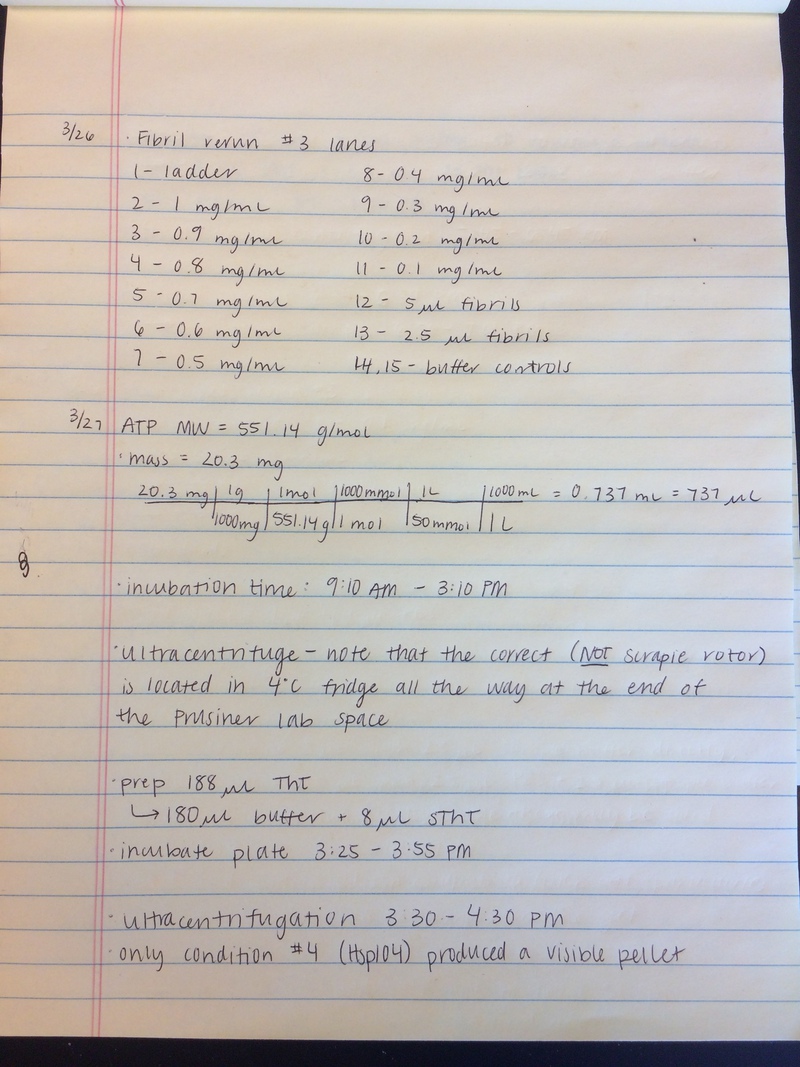 3/26 · Fibril rerun #3 lanes
1 - ladder 8 - 0.4 mg/mL
2 - 1 mg/mL 9 - 0.3 mg/mL
3 - 0.9 mg/mL 10 - 0.2 mg/mL
4 - 0.8 mg/mL 11 - 0.1 mg/mL
5 - 0.7 mg/mL 12 - 5 µL fibrils
6 - 0.6 mg/mL 13 - 2.5 µL fibrils
7 - 0.5 mg/mL 14,15 - buffer controls
3/27 ATP MW = 551.14 g/mol
· mass = 20.3 mg
20.3 mg | 1g | 1mol | 1000mmol | 1L | 1000mL = 0.737 mL = 737 µL
1000mg | 551.14g | 1 mol | 50mmol | 1L
· incubation time: 9:10 AM - 3:10 PM
· ultracentrifuge - note that the correct (NOT scrapie rotor)
is located in 4°C fridge all the way at the end of
the Prusiner lab space
· prep 188 µL ThT
↳ 180 µL buffer + 8 µL SThT
· incubate plate 3:25 - 3:55 PM
· ultracentrifugation 3:30 - 4:30 PM
· only condition #4 (Hsp104) produced a visible pellet